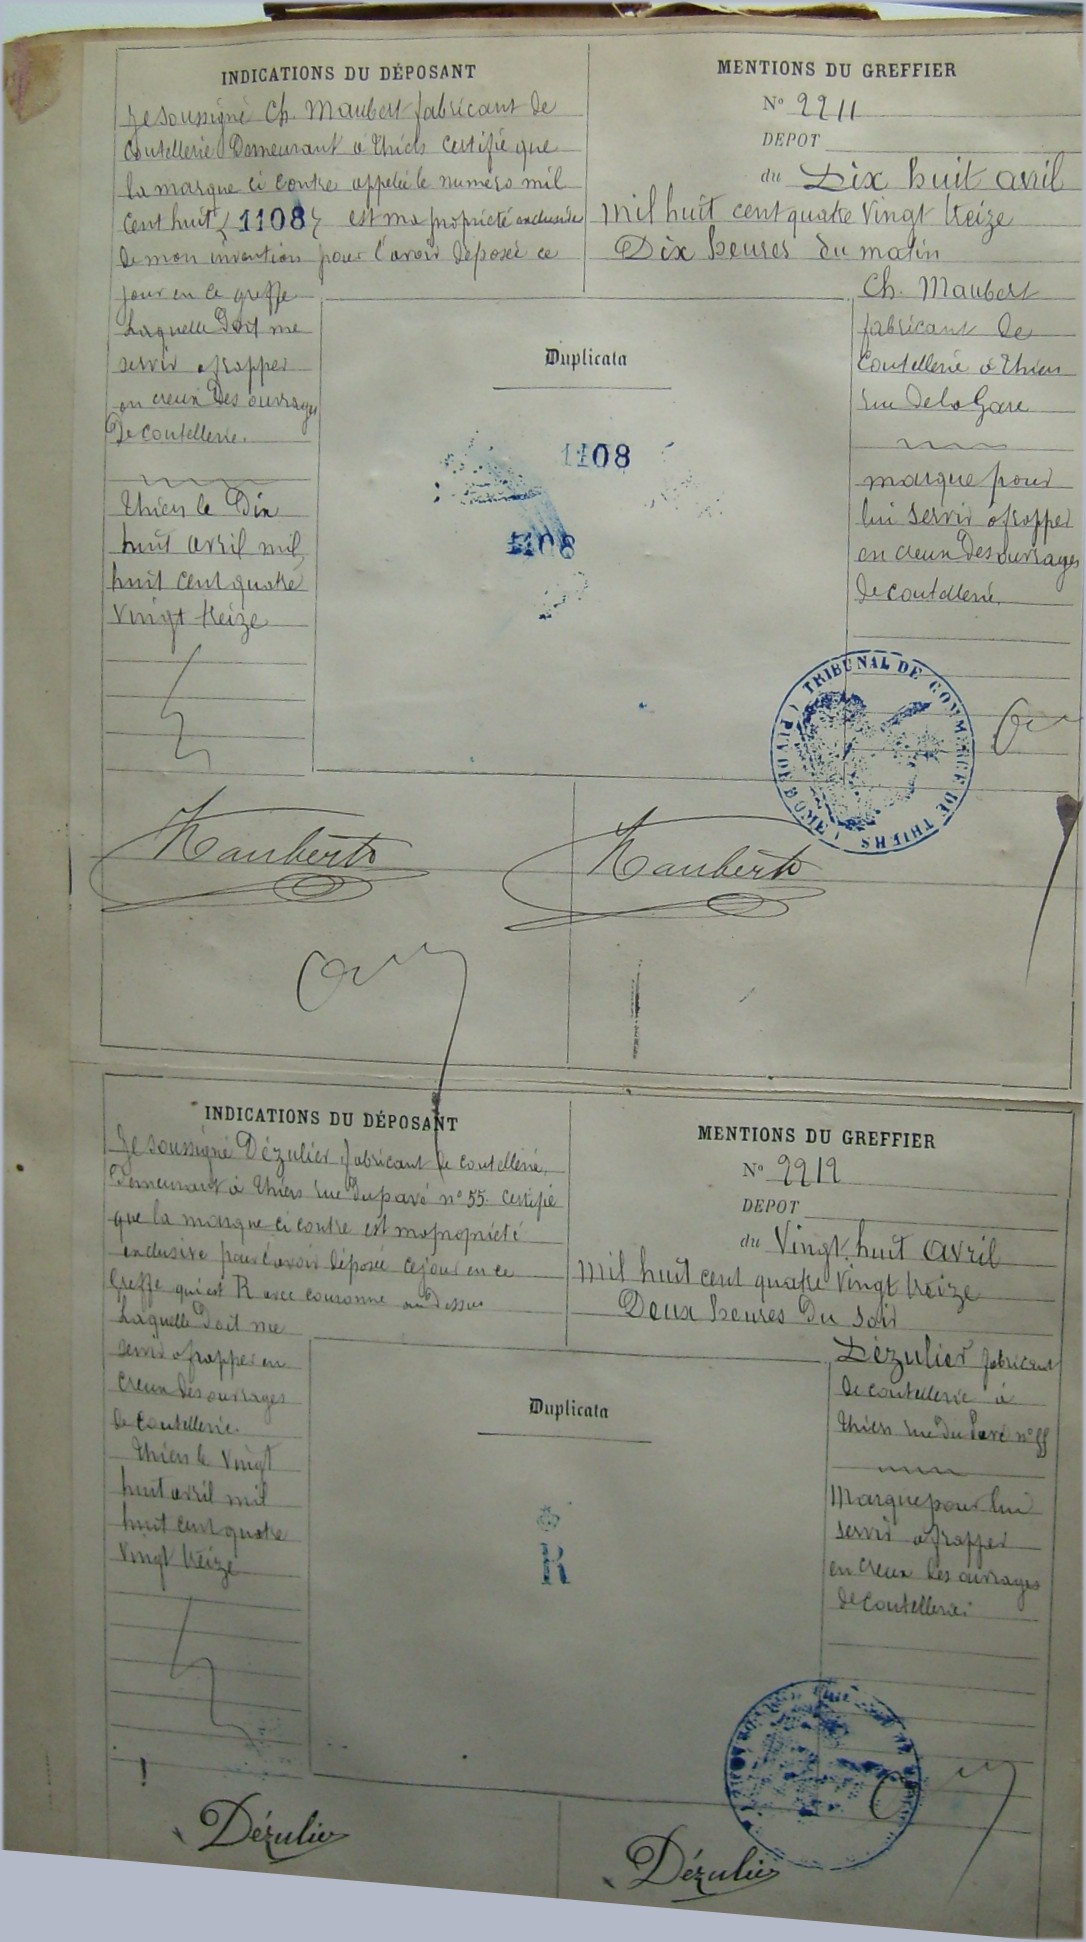 INDICATIONS DU DÉPOSANT
Je soussigné Ch. Maubert fabricant de
Coutellerie Demeurant à Thiers certifie que
la marque ci contre appelée le numéro mil
cent huit (1108) est ma propriété exclusive
de mon invention pour l'avoir déposée ce
jour en ce greffe
Laquelle doit me
servir à frapper
en creux des ouvrages
De coutellerie.
Thiers le Dix
huit avril mil
huit cent quatre
vingt treize
MENTIONS DU GREFFIER
N° 2211
DEPOT
du Dix huit avril
mil huit cent quatre vingt treize
Dix heures du matin
Ch. Maubert
fabricant de
Coutellerie à Thiers
rue de la Gare
marque pour
lui servir à frapper
en creux des ouvrages
de coutellerie.
Duplicata
1108
1108
TRIBUNAL DE COMMERCE DE THIERS (PUY DE DOME)
Maubert
Maubert
INDICATIONS DU DÉPOSANT
Je soussigné Dézulier fabricant de coutellerie,
Demeurant à Thiers rue Du pavé n° 55. certifie
que la marque ci contre est ma propriété
exclusive pour l'avoir déposée ce jour en ce
Greffe qui est R avec couronne au dessus
Laquelle doit me
servir à frapper en
creux des ouvrages
de coutellerie.
Thiers le vingt
huit avril mil
huit cent quatre
vingt treize
MENTIONS DU GREFFIER
N° 2212
DEPOT
du Vingt huit avril
mil huit cent quatre vingt treize
Deux heures du soir
Dézulier fabricant
de coutellerie à
Thiers rue du Pavé n° 55
Marque pour lui
servir à frapper
en creux les ouvrages
de coutellerie.
Duplicata
R
Dézulier
Dézulier